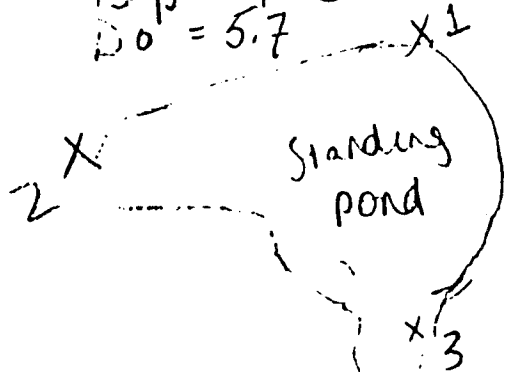 Do = 5.7
X 1
X
2
Standing
pond
x 3